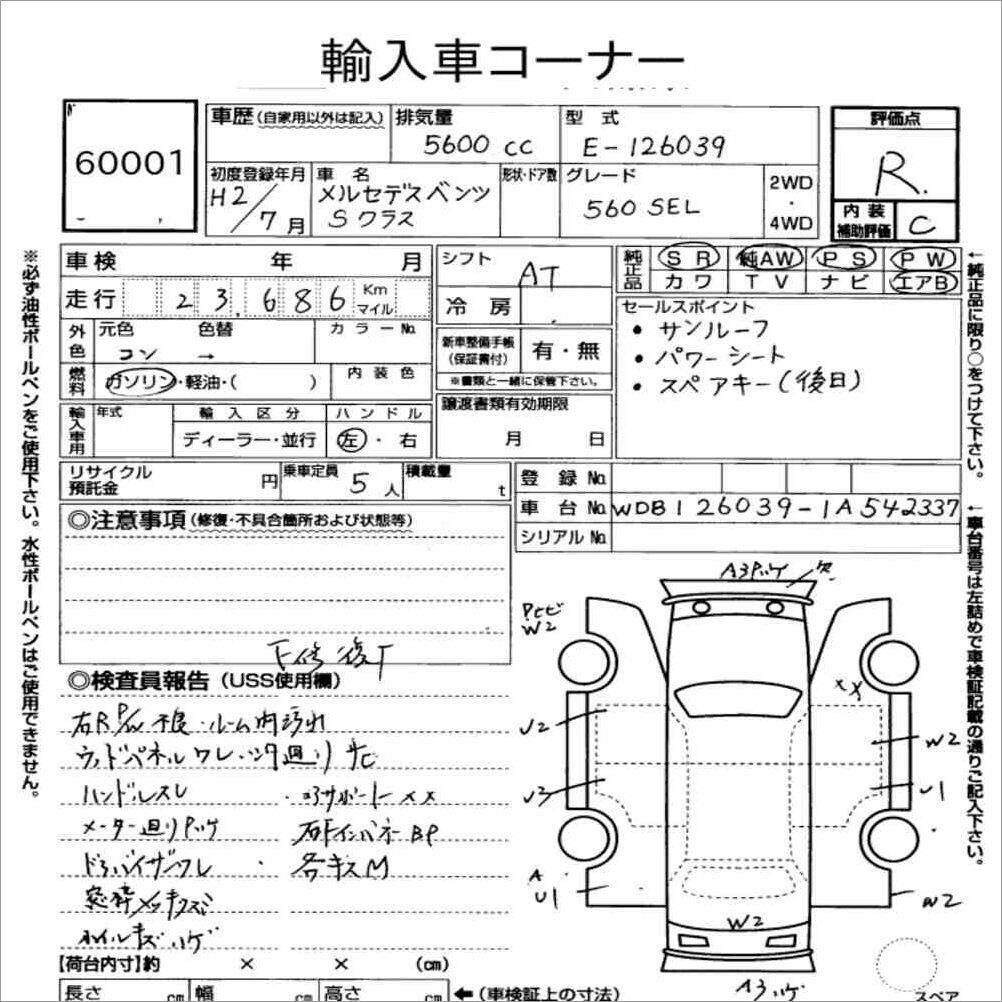 輸入車コーナー
60001
車歴(自家用以外は記入)
排気量
5600 cc
型式
E-126039
評価点
R.
初度登録年月
H2/7月
車名
メルセデスベンツ
Sクラス
形状・ドア数
グレード
560 SEL
2WD
・
4WD
内装
補助評価
C
車検 年 月
走行 23,686 Km
マイル
外色
元色 色替
コン →
カラーNo.
燃料
ガソリン・軽油・( )
内装色
輸入車用
年式
輸入区分
ディーラー・並行
ハンドル
左・右
シフト
AT
冷房
新車整備手帳
(保証書付)
有・無
※書類と一緒に保管下さい。
譲渡書類有効期限
月 日
純正品
SR 純AW PS PW
カワ TV ナビ エアB
セールスポイント
・サンルーフ
・パワーシート
・スペアキー(後日)
リサイクル
預託金 円
乗車定員 5人
積載量 t
登録No.
車台No. WDB126039-1A542337
シリアルNo.
◎注意事項(修復・不具合箇所および状態等)
◎検査員報告(USS使用欄)
右R P/W不良・ルーム内汚れ
ウッドパネルワレ・シタ廻りサビ
ハンドルスレ
コアサポートXX
メーター廻り
右FインパネーBP
各キズM
ホイルキズハゲ
【荷台内寸】約 × × (cm)
長さ cm 幅 cm 高さ cm ←(車検証上の寸法)
※必ず油性ボールペンをご使用下さい。水性ボールペンはご使用できません。
←純正品に限り○をつけて下さい。
←車台番号は左詰めで車検証記載の通りご記入下さい。
W2
XX
U2
W2
U3
U1
A
U1
W2
W2
スペア